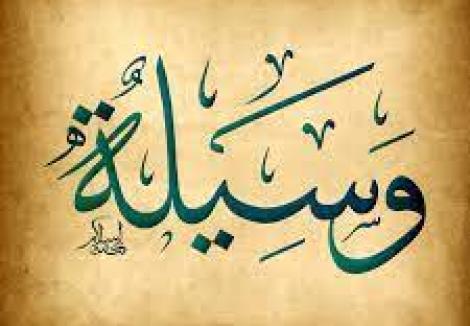 وَسِيلَةُ